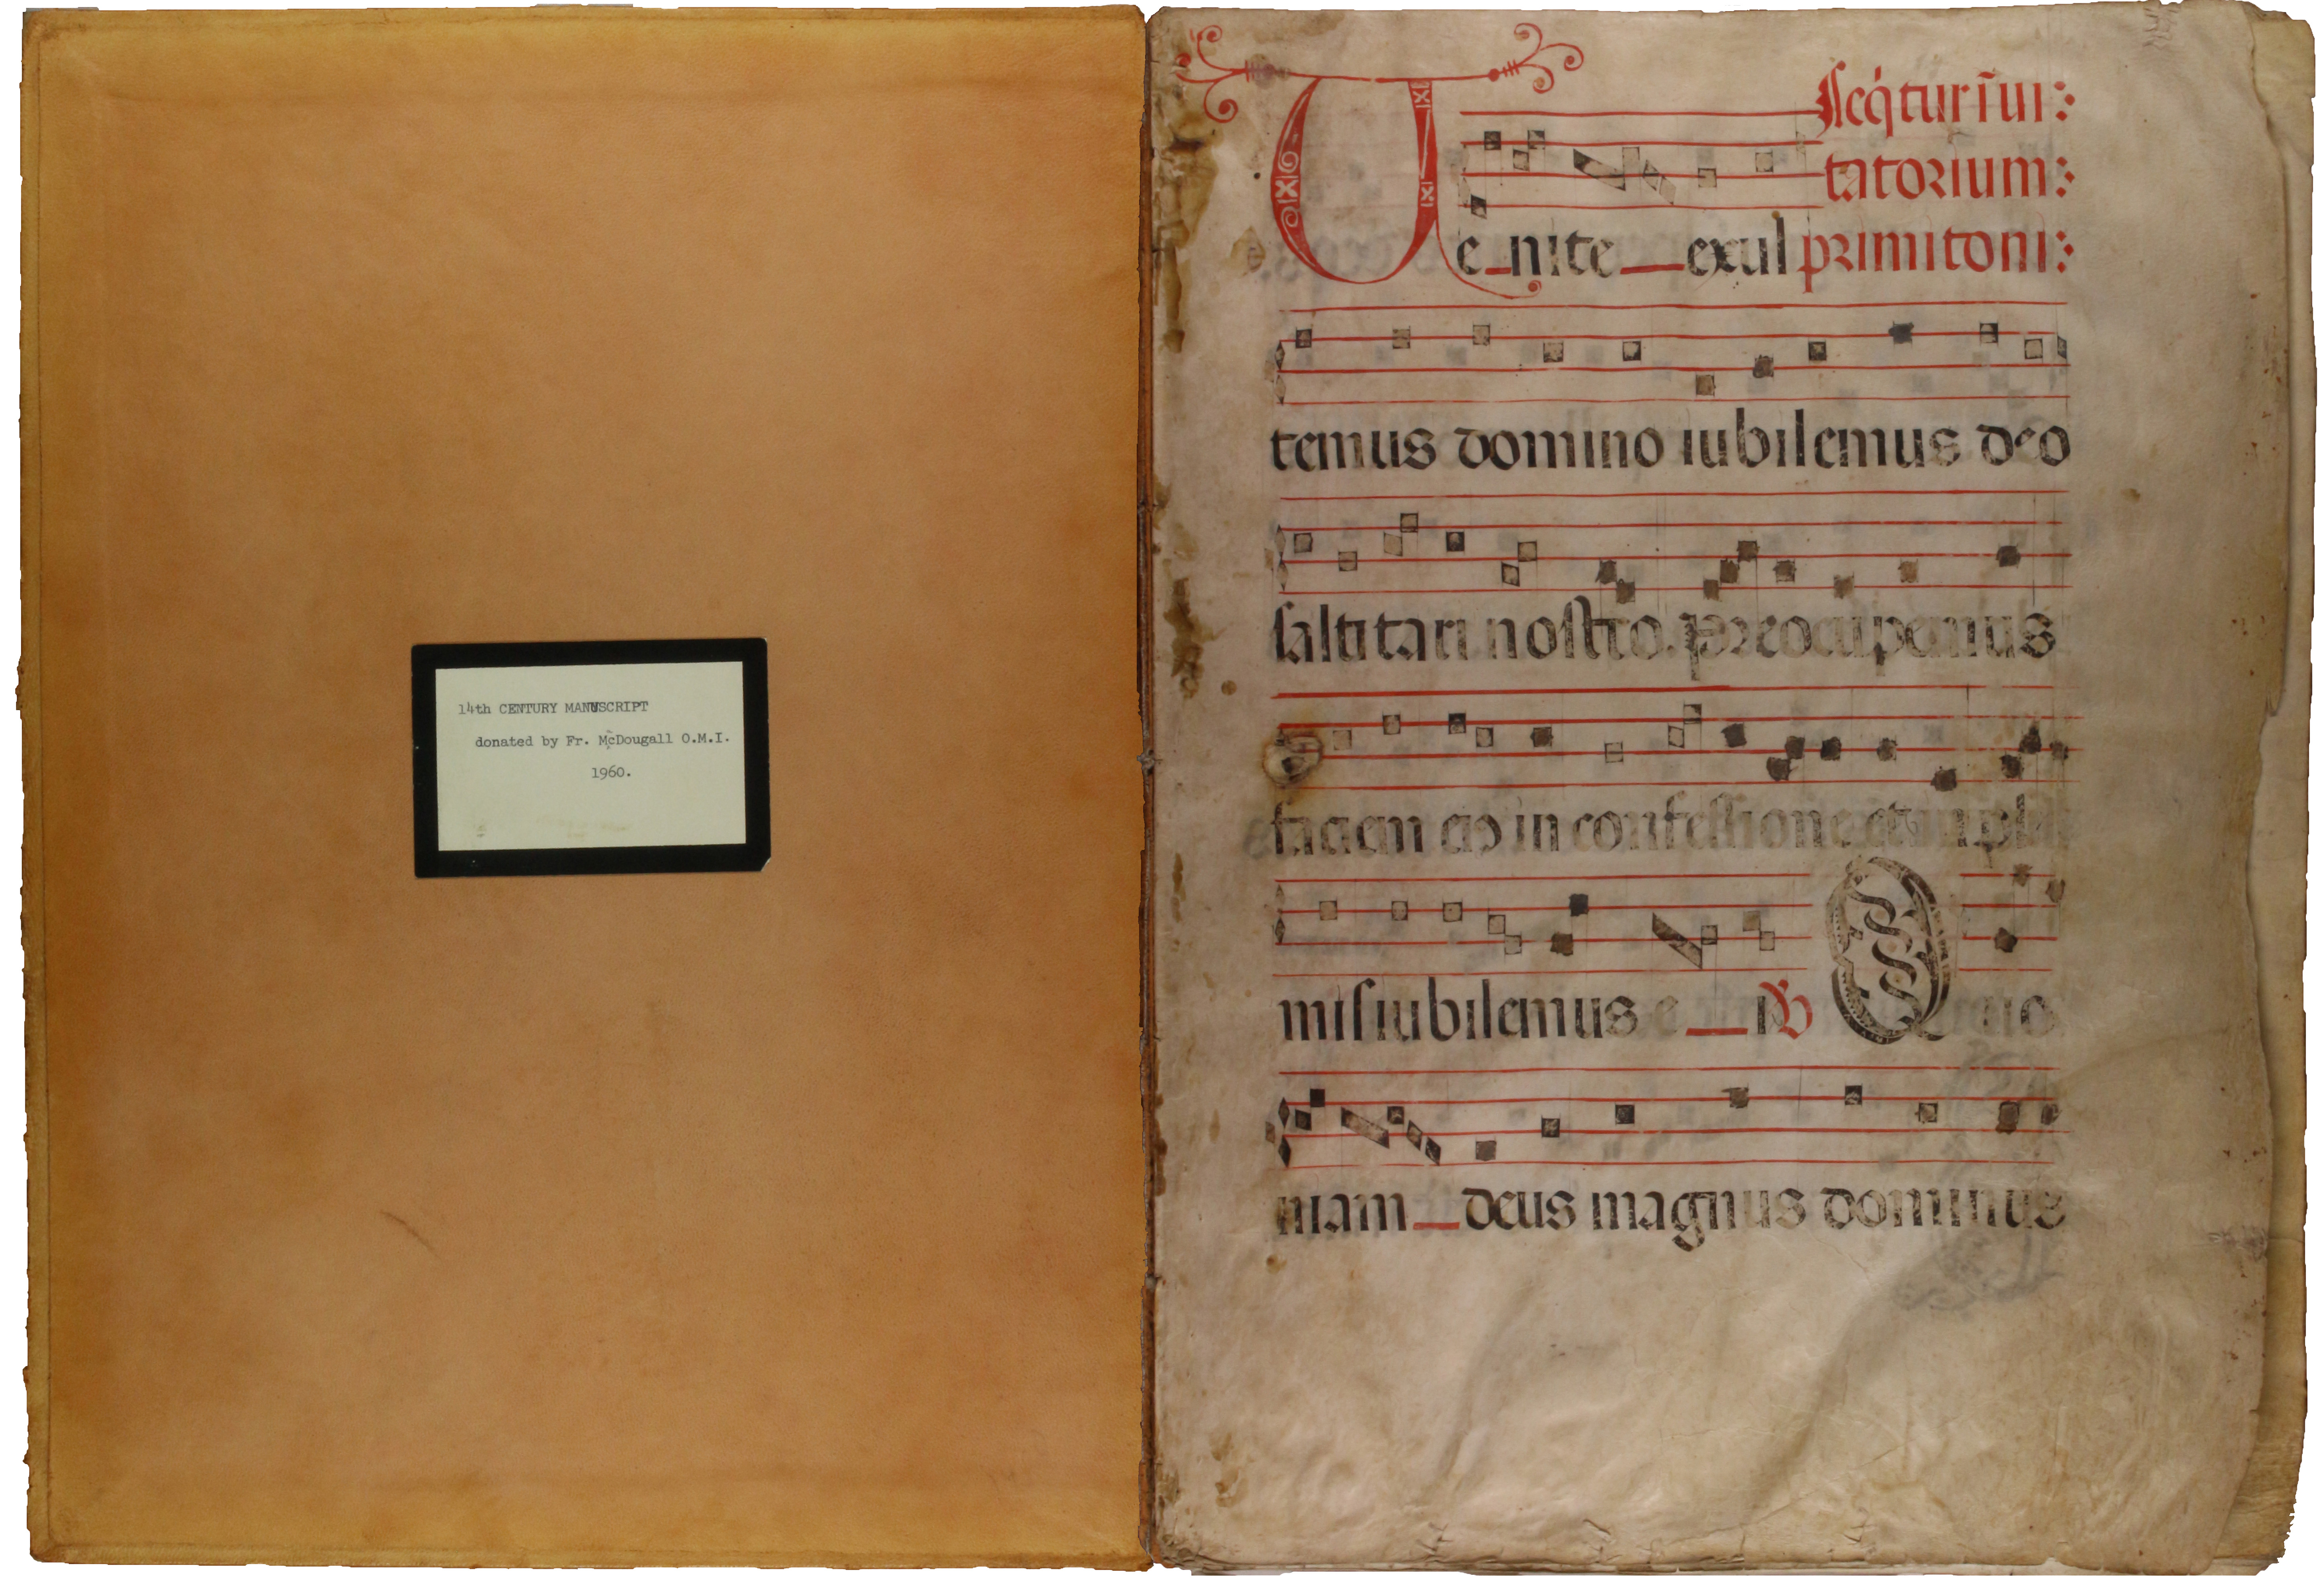 14th CENTURY MANUSCRIPT
donated by Fr. McDougall O.M.I.
1960.
Seq̇tur ĩui:
tatorium:
Ve_nite_exul primi toni:
temus domino iubilemus deo
saluta ri nostro. preocupemus
faciem eiꝰ in confessione et in psal
mis iubilemus e_i ℣ Quo
niam_deus magnus dominus